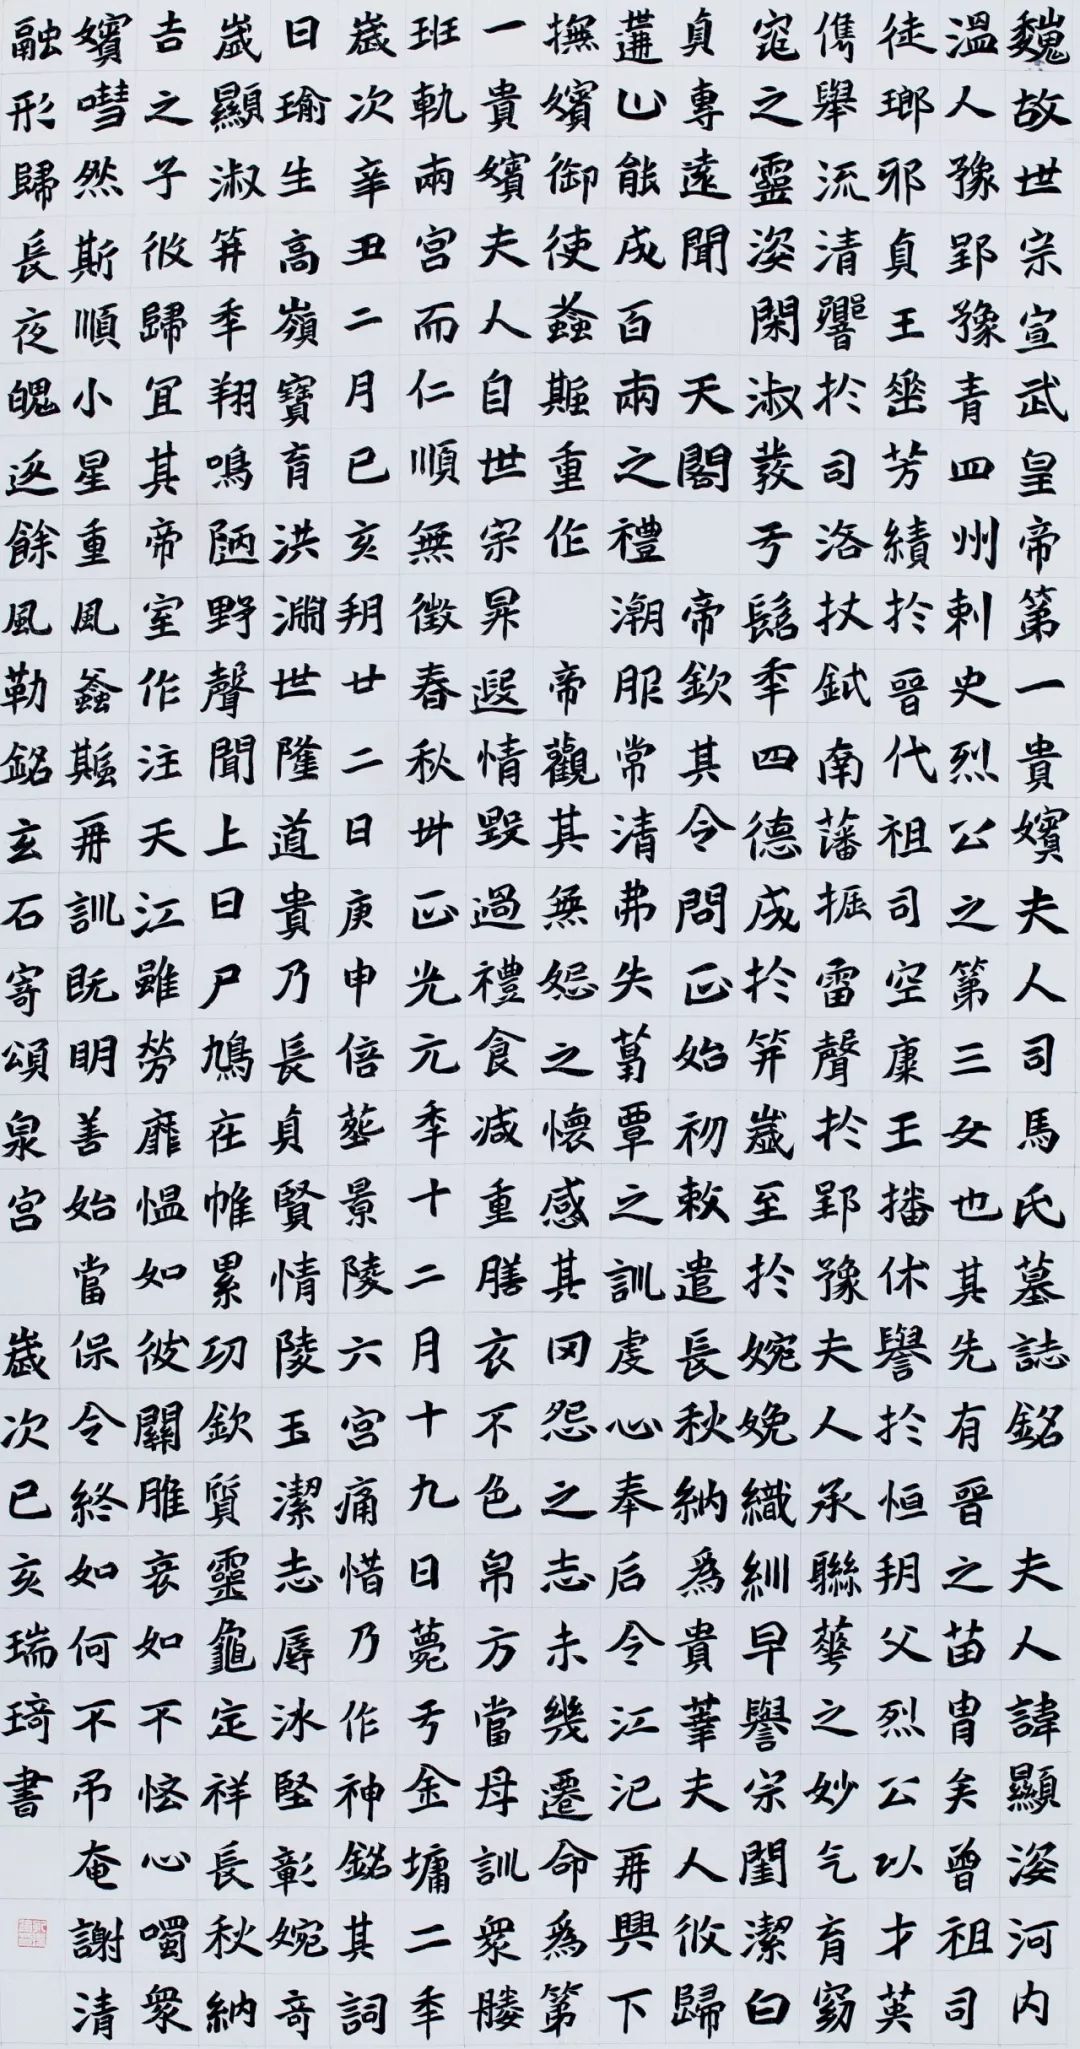 魏故世宗宣武皇帝第一貴嬪夫人司馬氏墓誌銘 夫人諱顯姿河内
溫人豫郢豫青四州刺史烈公之第三女也其先有晉之苗胄矣曾祖司
徒瑯邪貞王垂芳績於晉代祖司空康王播休譽於恒朔父烈公以才英
儁舉流清響於司洛杖鉞南藩振雷聲於郢豫夫人承聯華之妙气育窈
窕之靈姿閑淑發于髫年四德成於笄歲至於婉娩織紃早譽宗閨潔白
貞專遠聞 天閣 帝欽其令問正始初敕遣長秋納為貴華夫人攸歸
遘止能成百兩之禮 潮服常清弗失葛覃之訓虔心奉后令江汜再興下
撫嬪御使螽斯重作 帝觀其無怨之懷感其罔怨之志未幾遷命為第
一貴嬪夫人自世宗昇遐情毀過禮食減重膳衣不色帛方當母訓眾媵
班軌兩宮而仁順無徵春秋卅正光元年十二月十九日薨于金墉二年
歲次辛丑二月己亥朔廿二日庚申倍葬景陵六宮痛惜乃作神銘其詞
曰瑜生高嶺寶育洪淵世隆道貴乃長貞賢情陵玉潔志辱冰堅彰婉奇
歲顯淑笄年翔鳴陋野聲聞上日尸鳩在帷累功欽質靈龜定祥長秋納
吉之子攸歸宜其帝室作注天江雖勞靡慍如彼關雎哀如不恡心噣眾
嬪嘒然斯順小星重風螽斯再訓既明善始當保令終如何不弔奄謝清
融形歸長夜魄返餘風勒銘玄石寄頌泉宮 歲次己亥瑞琦書